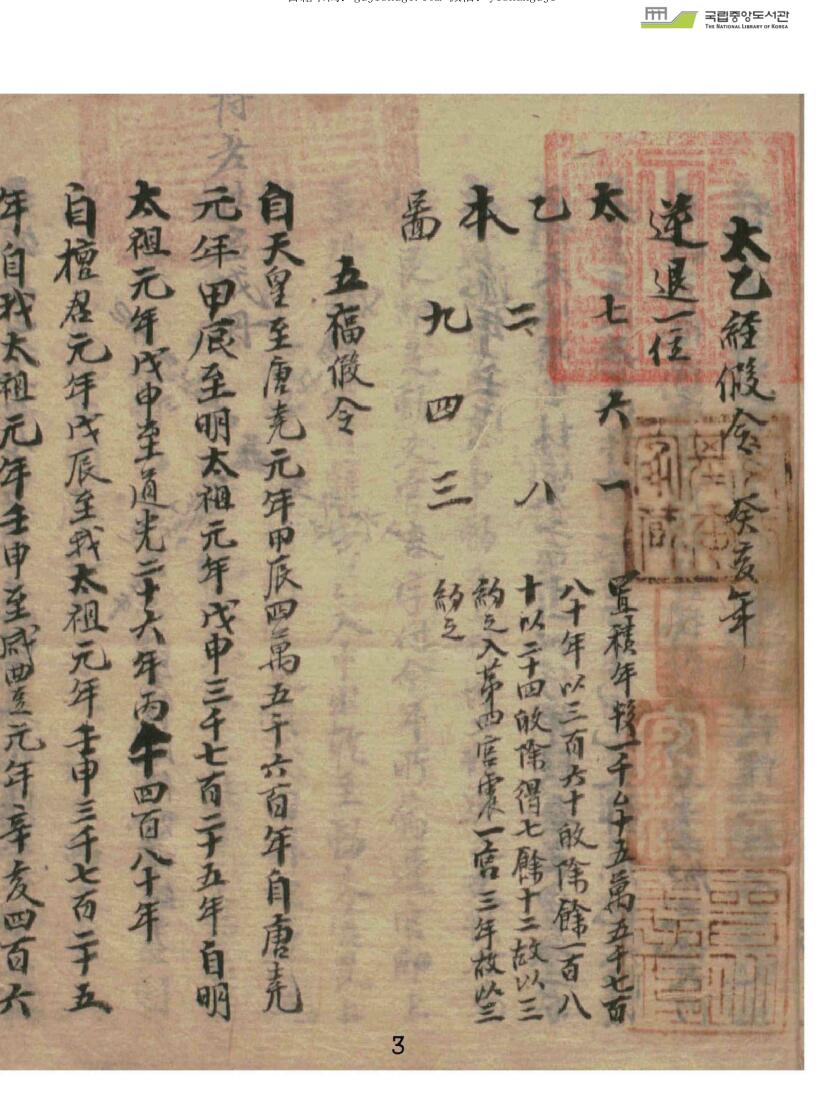 국립중앙도서관
THE NATIONAL LIBRARY OF KOREA
太乙經假令 癸亥年
逆退一位
太 七 六 一
乙 二 八
本
啚 九 四 三
置積年數一千厶十五萬五千七百
八十年以三百六十收除餘一百八
十以二十四收除得七餘十二故以三
約之入第四宮震一宮三年故以三
約之
五福假令
自天皇至唐堯元年甲辰四萬五千六百年自唐堯
元年甲辰至明太祖元年戊申三千七百二十五年自明
太祖元年戊申至道光二十六年丙午四百八十年
自檀君元年戊辰至我太祖元年壬申三千七百二十五
年自我太祖元年壬申至咸豊元年辛亥四百六
3